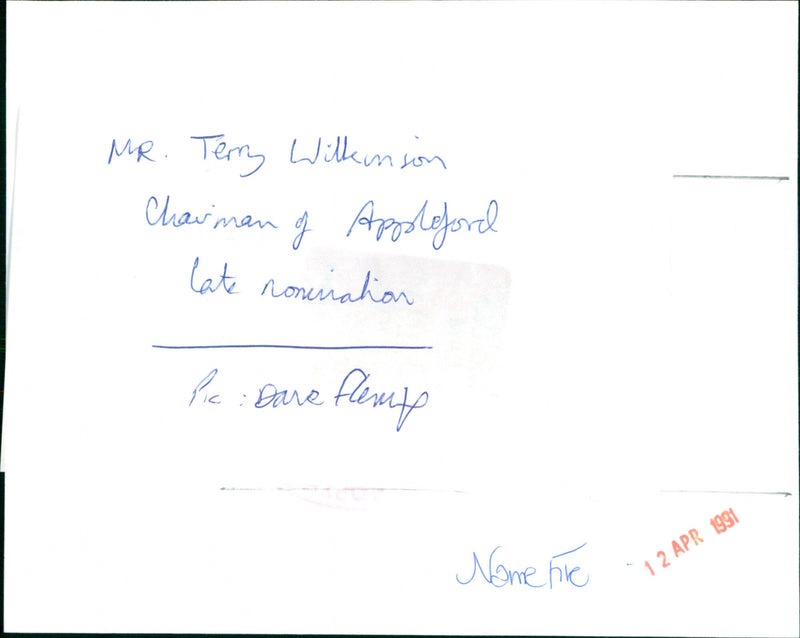 MR. Terry Wilkinson
Chairman of Appleford
late nomination
Pic: Dave Fleming
Name File
12 APR 1991